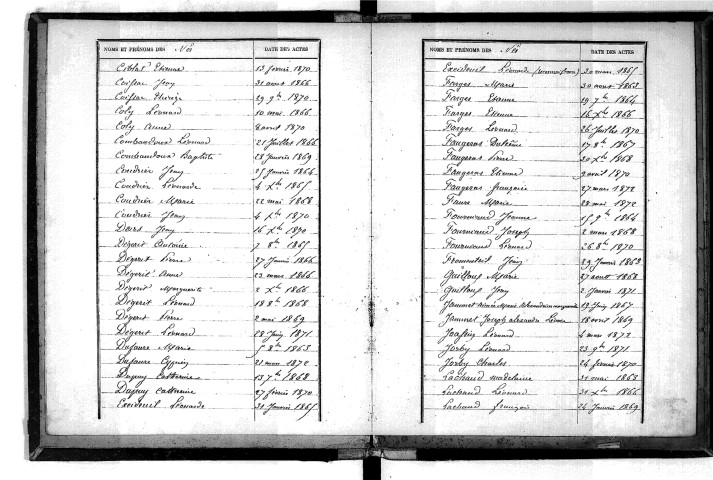 NOMS ET PRÉNOMS DES Nés DATE DES ACTES
Etienne 13 février 1870
Jeny 31 aout 1866
29 9bre 1870
Coly Léonard 10 mai 1866
Coly Anne 2 avril 1870
Combaudoux Léonard 21 Juillet 1866
Combaudoux Baptiste 28 Janvier 1869
Coudrier Jeny 25 Janvier 1864
Coudrier Léonarde 4 Xbre 1865
Coudrier Marie 22 mai 1868
Coudrier Jeny 4 Xbre 1870
Jeny 16 Xbre 1870
Dégerit Antoine 7 8bre 1865
Dégerit Pierre 27 Janvier 1866
Dégerit Anne 23 mars 1866
Dégerit Marguerite 2 Xbre 1866
Dégerit Léonard 18 8bre 1868
Dégerit Pierre 2 mai 1869
Dégerit Léonard 28 Juin 1871
Dufaure Marie 5 8bre 1863
Dufaure Cyprien 21 mars 1872
Catherine 13 7bre 1868
Catherine 27 février 1870
Exeideuil Léonarde 31 Janvier 1865
NOMS ET PRÉNOMS DES Nés DATE DES ACTES
Exeideuil Léonarde 30 mars 1865
Farges Marie 30 aout 1863
Farges Etienne 19 7bre 1864
Farges Etienne 16 Xbre 1866
Farges Léonard 26 Juillet 1870
Faugeras 17 8bre 1867
Faugeras Pierre 20 Xbre 1868
Faugeras Etienne 9 avril 1870
Faugeras françoise 27 mars 1872
Faure Marie 28 mai 1872
Fournaud Jeanne 15 9bre 1864
Fournaud Joseph 2 mars 1868
Fournaud Léonard 26 8bre 1870
Jeny 29 Janvier 1868
Guilloux Marie 27 aout 1868
Guilloux Jeny 2 Janvier 1871
Jammet Aimée Marie Alexandrine marguerite 19 Juin 1867
Jammet Joseph alexandre 18 avril 1869
Léonard 4 mars 1872
Jorby Léonard 23 9bre 1871
Jorby Charles 24 février 1870
Lachaud madelaine 31 mai 1863
Lachaud Léonard 31 Xbre 1866
Lachaud françois 24 Janvier 1869